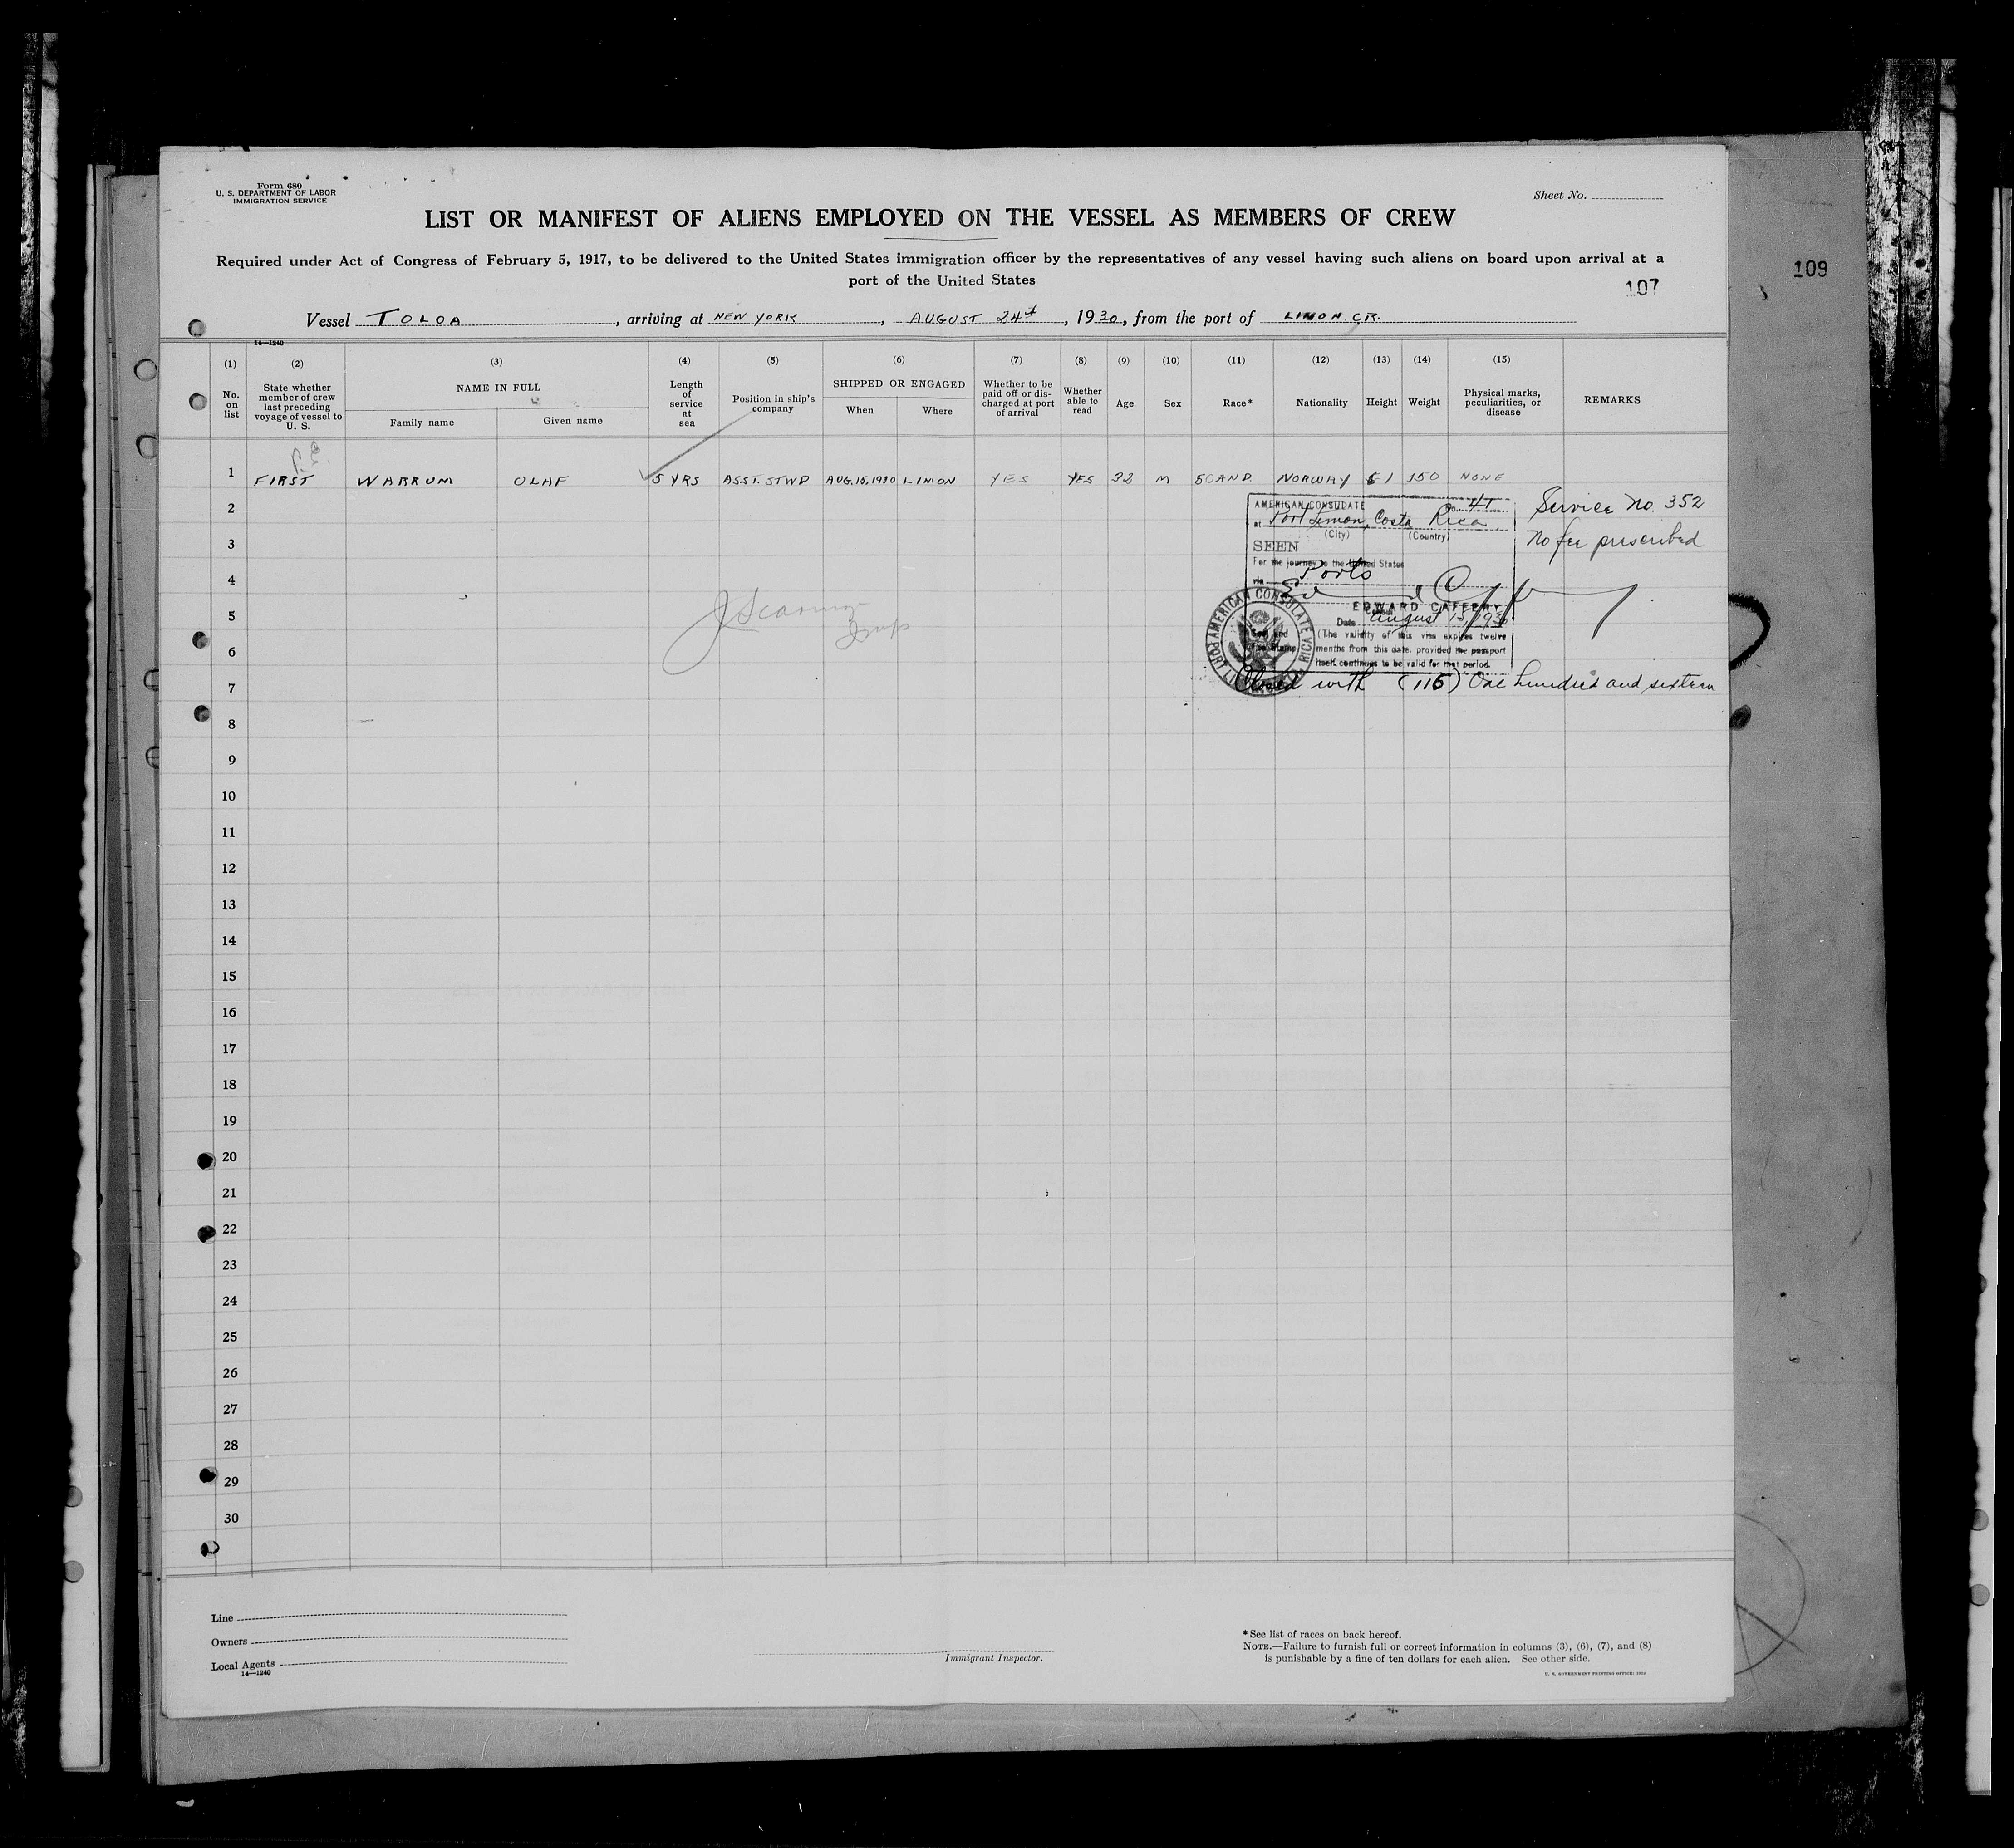 Form 680
U. S. DEPARTMENT OF LABOR
IMMIGRATION SERVICE
Sheet No.
LIST OR MANIFEST OF ALIENS EMPLOYED ON THE VESSEL AS MEMBERS OF CREW
Required under Act of Congress of February 5, 1917, to be delivered to the United States immigration officer by the representatives of any vessel having such aliens on board upon arrival at a
port of the United States
109
107
Vessel TOLOA, arriving at NEW YORK, AUGUST 24th, 1930, from the port of LIMON C.R.
14—1240
(1) (2) (3) (4) (5) (6) (7) (8) (9) (10) (11) (12) (13) (14) (15)
No. on list
State whether member of crew last preceding voyage of vessel to U. S.
NAME IN FULL
Family name
Given name
Length of service at sea
Position in ship's company
SHIPPED OR ENGAGED
When
Where
Whether to be paid off or discharged at port of arrival
Whether able to read
Age
Sex
Race*
Nationality
Height
Weight
Physical marks, peculiarities, or disease
REMARKS
1 FIRST WARRUM OLAF 5 YRS ASST. STWD AUG. 15, 1930 LIMON YES YES 32 M SCAND. NORWAY 5 1 150 NONE
2
3
4
5
6
7
8
9
10
11
12
13
14
15
16
17
18
19
20
21
22
23
24
25
26
27
28
29
30
AMERICAN CONSULATE No. 41
at Port Limon, Costa Rica
(City) (Country)
SEEN
For the journey to the United States
via Ports
EDWARD CAFFERY
Consul
Date August 15, 1930
(The validity of this visa expires twelve
months from this date, provided the passport
itself continues to be valid for that period.
Seal and
Fee Stamp
AMERICAN CONSULATE
PORT LIMON COSTA RICA
Service No. 352
No fee prescribed
Closed with (116) One hundred and sixteen
Line
Owners
Local Agents
14—1240
Immigrant Inspector.
* See list of races on back hereof.
NOTE.—Failure to furnish full or correct information in columns (3), (6), (7), and (8)
is punishable by a fine of ten dollars for each alien. See other side.
U. S. GOVERNMENT PRINTING OFFICE: 1930